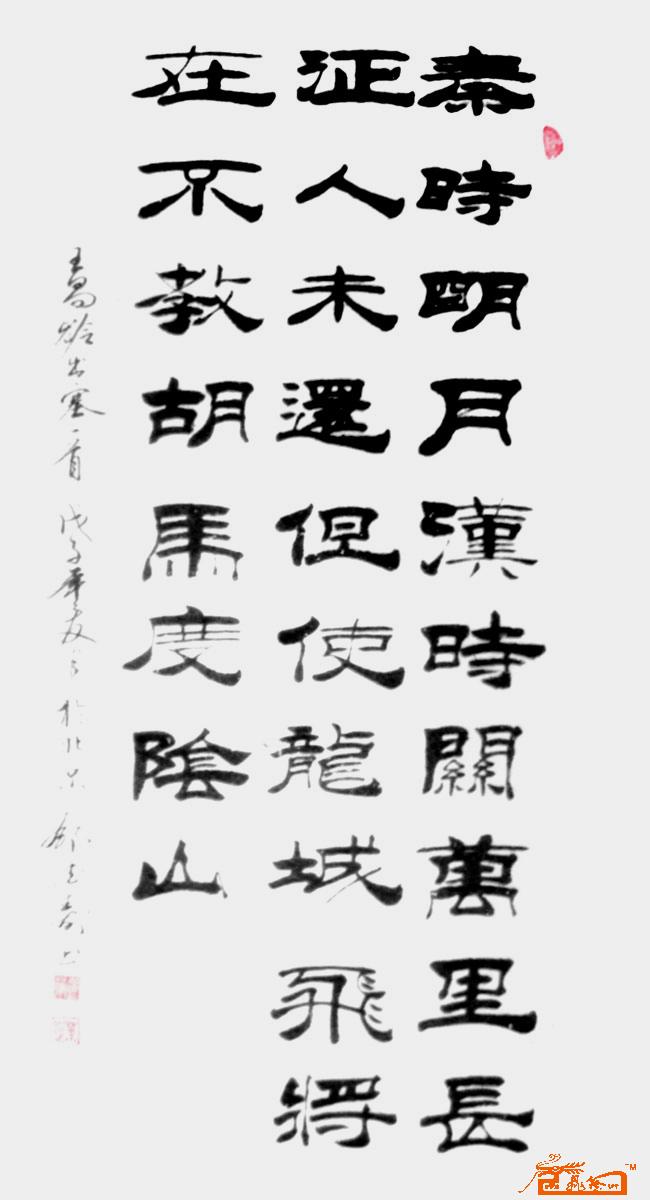 秦時明月漢時關萬里長
征人未還但使龍城飛將
在不教胡馬度陰山
王昌齡出塞一首 戊子年夏 於北京